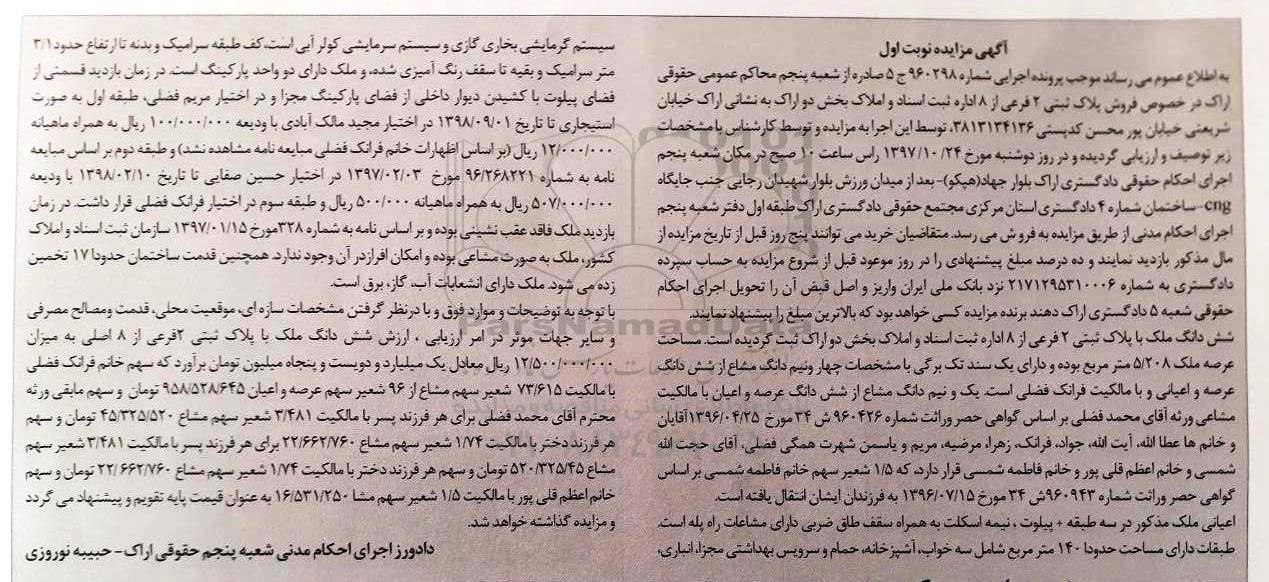 آگهی مزایده نوبت اول
به اطلاع عموم می رساند موجب پرونده اجرایی شماره ۹۶۰۲۹۸ ج ۵ صادره از شعبه پنجم محاکم عمومی حقوقی
اراک در خصوص فروش پلاک ثبتی ۲ فرعی از ۸ اداره ثبت اسناد و املاک بخش دو اراک به نشانی اراک خیابان
شریعتی خیابان پور محسن کدپستی ۳۸۱۳۱۳۴۱۳۶، توسط این اجرا به مزایده و توسط کارشناس با مشخصات
زیر توصیف و ارزیابی گردیده و در روز دوشنبه مورخ ۲۴/ ۱۰/ ۱۳۹۷ راس ساعت ۱۰ صبح در مکان شعبه پنجم
اجرای احکام حقوقی دادگستری اراک بلوار جهاد(هپکو)- بعد از میدان ورزش بلوار شهیدان رجایی جنب جایگاه
cng-ساختمان شماره ۴ دادگستری استان مرکزی مجتمع حقوقی دادگستری اراک طبقه اول دفتر شعبه پنجم
اجرای احکام مدنی از طریق مزایده به فروش می رسد. متقاضیان خرید می توانند پنج روز قبل از تاریخ مزایده از
مال مذکور بازدید نمایند و ده درصد مبلغ پیشنهادی را در روز موعود قبل از شروع مزایده به حساب سپرده
دادگستری به شماره ۲۱۷۱۲۹۵۳۱۰۰۰۶ نزد بانک ملی ایران واریز و اصل قبض آن را تحویل اجرای احکام
حقوقی شعبه ۵ دادگستری اراک دهند برنده مزایده کسی خواهد بود که بالاترین مبلغ را پیشنهاد نمایند.
شش دانگ ملک با پلاک ثبتی ۲ فرعی از ۸ اداره ثبت اسناد و املاک بخش دو اراک ثبت گردیده است. مساحت
عرصه ملک ۵/۲۰۸ متر مربع بوده و دارای یک سند تک برگی با مشخصات چهار ونیم دانگ مشاع از شش دانگ
عرصه و اعیانی و با مالکیت فرانک فضلی است. یک و نیم دانگ مشاع از شش دانگ عرصه و اعیان با مالکیت
مشاعی ورثه آقای محمد فضلی بر اساس گواهی حصر وراثت شماره ۹۶۰۴۲۶ ش ۳۴ مورخ ۱۳۹۶/۰۴/۲۵آقایان
و خانم ها عطا الله، آیت الله، جواد، فرانک، زهرا، مرضیه، مریم و یاسمن شهرت همگی فضلی، آقای حجت الله
شمسی و خانم اعظم قلی پور و خانم فاطمه شمسی قرار دارد، که ۱/۵ شعیر سهم خانم فاطمه شمسی بر اساس
گواهی حصر وراثت شماره ۹۶۰۹۴۳ش ۳۴ مورخ ۱۳۹۶/۰۷/۱۵ به فرزندان ایشان انتقال یافته است.
اعیانی ملک مذکور در سه طبقه + پیلوت ، نیمه اسکلت به همراه سقف طاق ضربی دارای مشاعات راه پله است.
طبقات دارای مساحت حدودا ۱۴۰ متر مربع شامل سه خواب، آشپزخانه، حمام و سرویس بهداشتی مجزا، انباری،
سیستم گرمایشی بخاری گازی و سیستم سرمایشی کولر آبی است، کف طبقه سرامیک و بدنه تا ارتفاع حدود ۳/۱
متر سرامیک و بقیه تا سقف رنگ آمیزی شده، و ملک دارای دو واحد پارکینگ است. در زمان بازدید قسمتی از
فضای پیلوت با کشیدن دیوار داخلی از فضای پارکینگ مجزا و در اختیار مریم فضلی، طبقه اول به صورت
استیجاری تا تاریخ ۱۳۹۸/۰۹/۰۱ در اختیار مجید مالک آبادی با ودیعه ۱۰۰/۰۰۰/۰۰۰ ریال به همراه ماهیانه
۱۲/۰۰۰/۰۰۰ ریال (بر اساس اظهارات خانم فرانک فضلی مبایعه نامه مشاهده نشد) و طبقه دوم بر اساس مبایعه
نامه به شماره ۹۶/۲۶۸۲۲۱ مورخ ۱۳۹۷/۰۲/۰۳ در اختیار حسین صفایی تا تاریخ ۱۳۹۸/۰۲/۱۰ با ودیعه
۵۰۷/۰۰۰/۰۰۰ ریال به همراه ماهیانه ۵۰۰/۰۰۰ ریال و طبقه سوم در اختیار فرانک فضلی قرار داشت. در زمان
بازدید ملک فاقد عقب نشینی بوده و بر اساس نامه به شماره ۳۲۸مورخ ۱۳۹۷/۰۱/۱۵ سازمان ثبت اسناد و املاک
کشور، ملک به صورت مشاعی بوده و امکان افراز در آن وجود ندارد. همچنین قدمت ساختمان حدودا ۱۷ تخمین
زده می شود. ملک دارای انشعابات آب، گاز، برق است.
با توجه به توضیحات و موارد فوق و با درنظر گرفتن مشخصات سازه ای، موقعیت محلی، قدمت ومصالح مصرفی
و سایر جهات موثر در امر ارزیابی ، ارزش شش دانگ ملک با پلاک ثبتی ۲فرعی از ۸ اصلی به میزان
۱۲/۵۰۰/۰۰۰/۰۰۰ ریال معادل یک میلیارد و دویست و پنجاه میلیون تومان برآورد که سهم خانم فرانک فضلی
با مالکیت ۷۳/۶۱۵ شعیر سهم مشاع از ۹۶ شعیر سهم عرصه و اعیان ۹۵۸/۵۲۸/۶۴۵ تومان و سهم مابقی ورثه
محترم آقای محمد فضلی برای هر فرزند پسر با مالکیت ۳/۴۸۱ شعیر سهم مشاع ۴۵/۳۲۵/۵۲۰ تومان و سهم
هر فرزند دختر با مالکیت ۱/۷۴ شعیر سهم مشاع ۲۲/۶۶۲/۷۶۰ برای هر فرزند پسر با مالکیت ۳/۴۸۱ شعیر سهم
مشاع ۵۲۰/۳۲۵/۴۵ تومان و سهم هر فرزند دختر با مالکیت ۱/۷۴ شعیر سهم مشاع ۲۲/۶۶۲/۷۶۰ تومان و سهم
خانم اعظم قلی پور با مالکیت ۱/۵ شعیر سهم مشا ۱۶/۵۳۱/۲۵۰ به عنوان قیمت پایه تقویم و پیشنهاد می گردد
و مزایده گذاشته خواهد شد.
دادورز اجرای احکام مدنی شعبه پنجم حقوقی اراک- حبیبه نوروزی
ParsNamadData